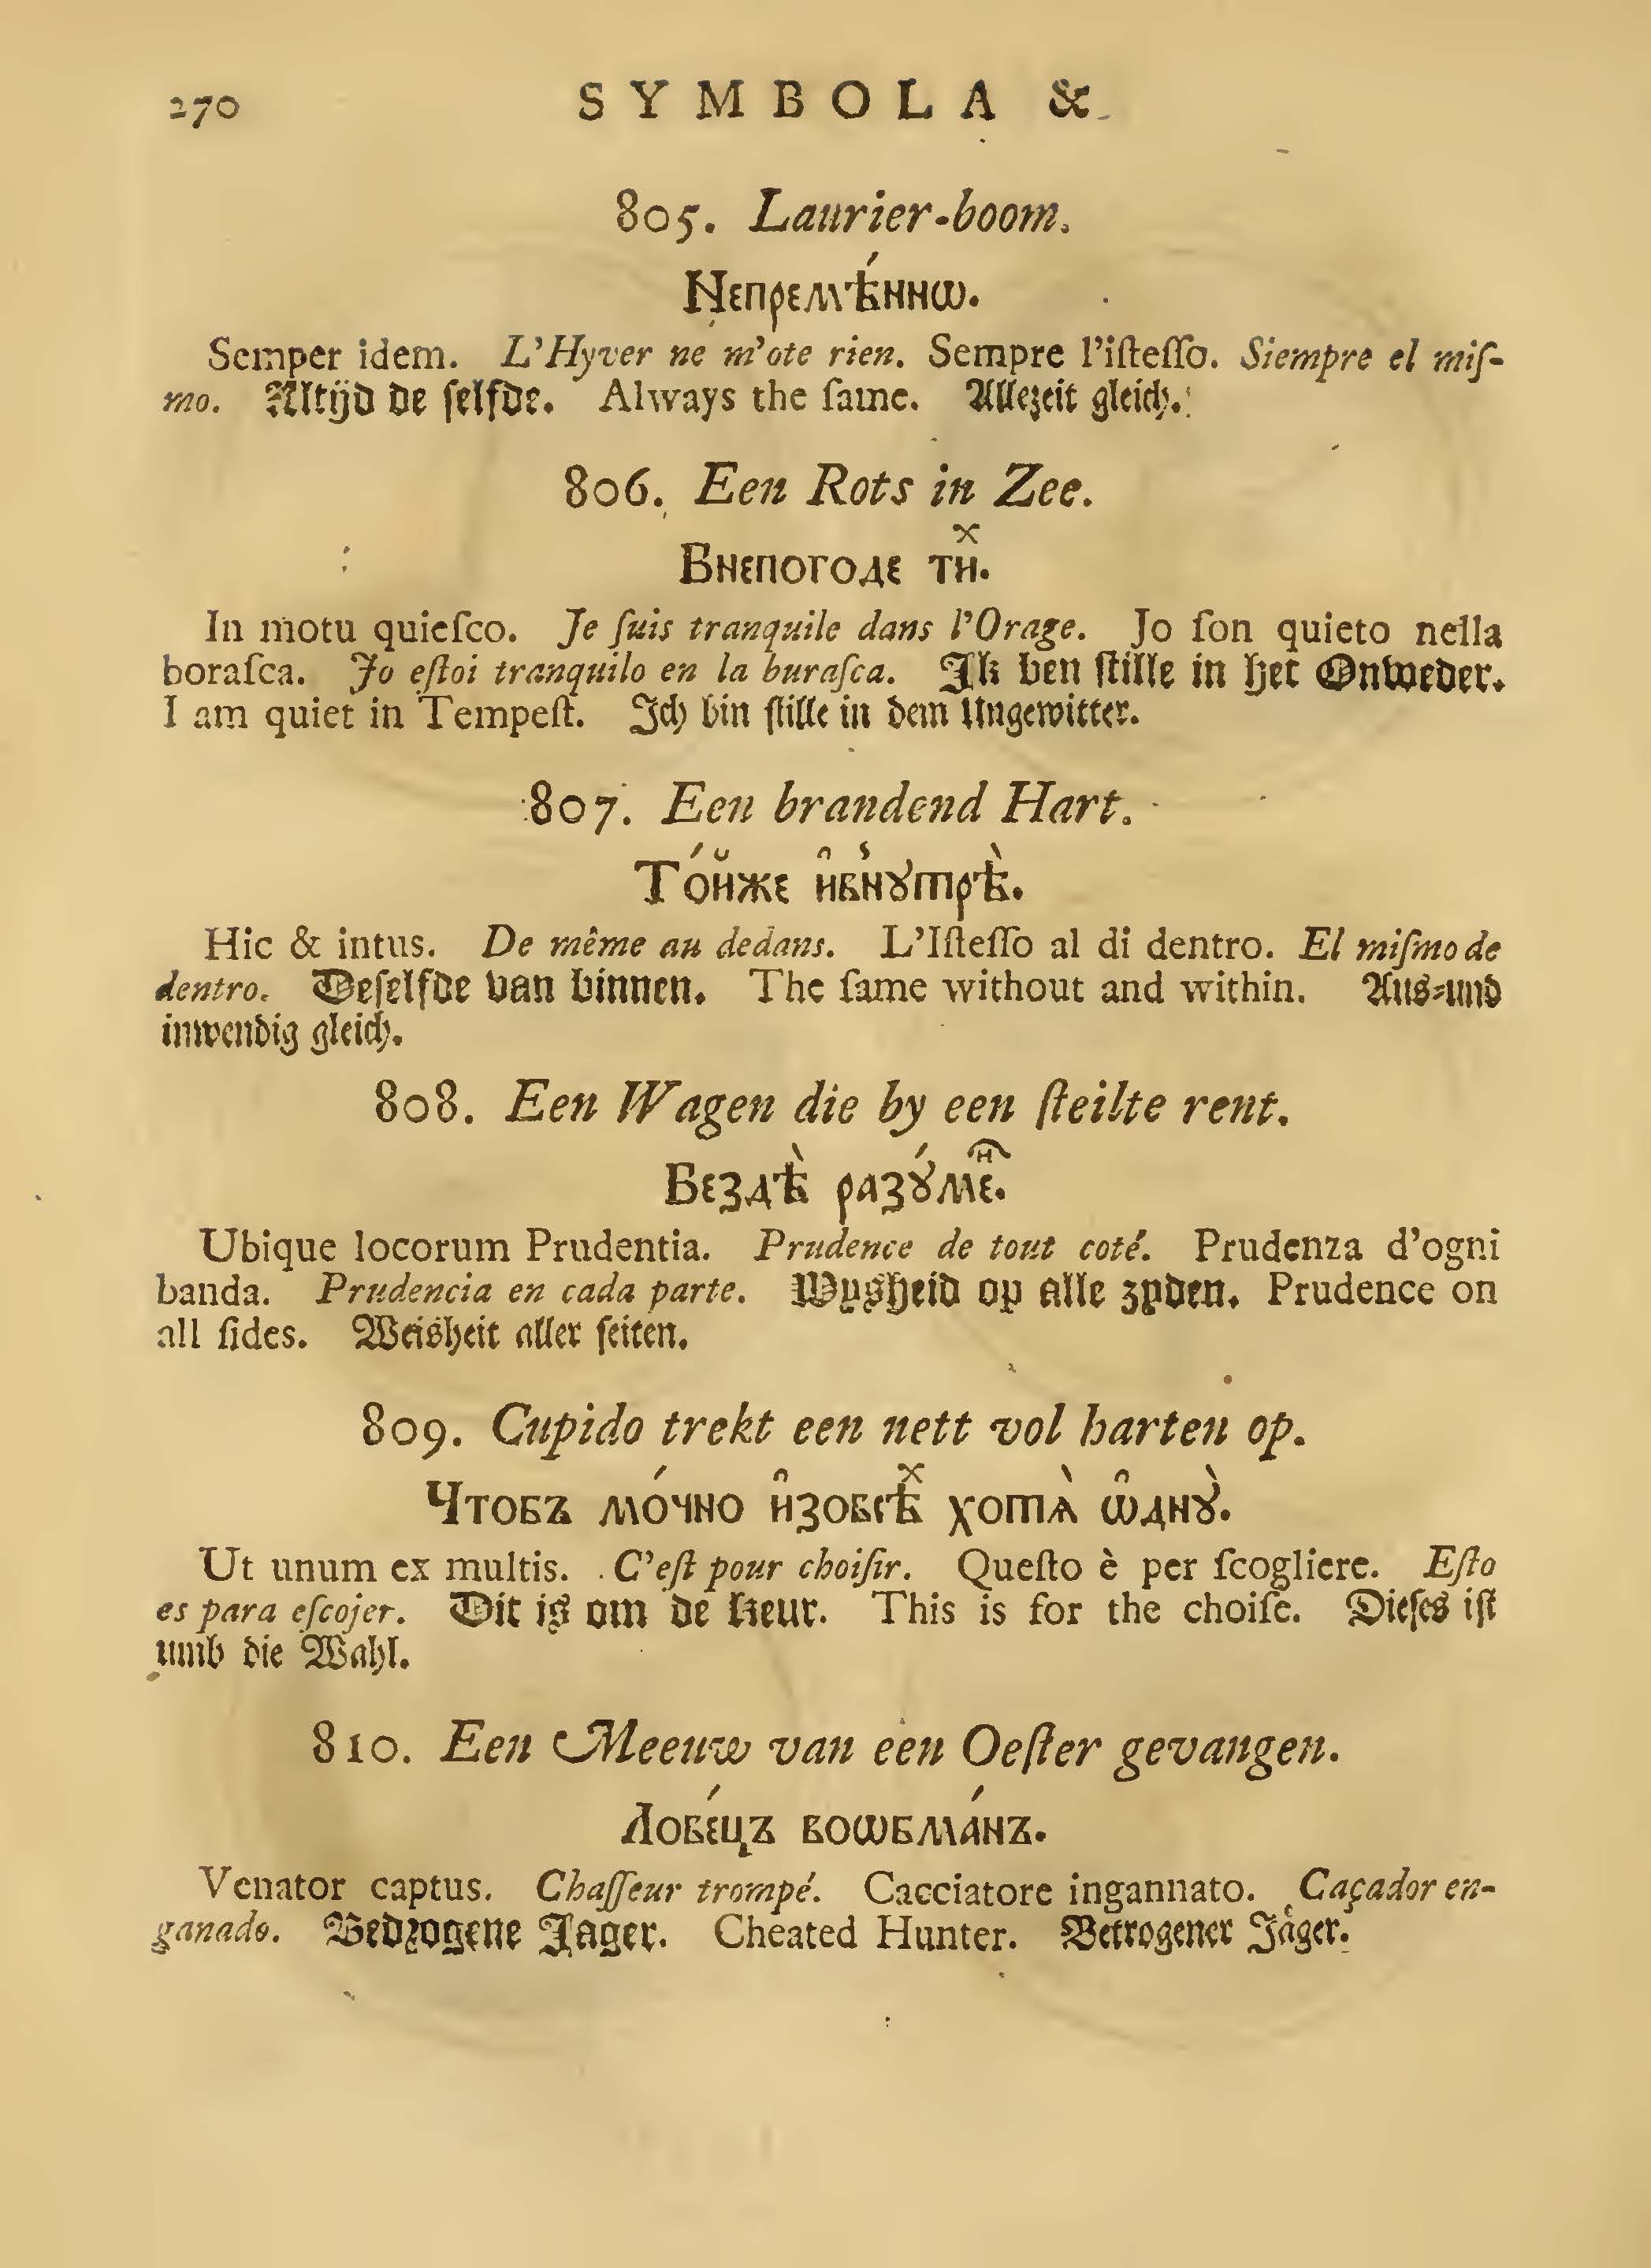 270 SYMBOLA &
805. Laurier-boom.
Непремѣ́ннѡ.
Semper idem. L'Hyver ne m'ote rien. Sempre l'iſteſſo. Siempre el miſ-
mo. Altijd de ſelfde. Always the ſame. Allezeit gleich.
806. Een Rots in Zee.
Внепогоде тиⷯ.
In motu quieſco. Je ſuis tranquile dans l'Orage. Jo ſon quieto nella
boraſca. Jo eſtoi tranquilo en la buraſca. Ik ben ſtille in het Onweder.
I am quiet in Tempeſt. Ich bin ſtille in dem Ungewitter.
807. Een brandend Hart.
То́йже и҆внꙋтрѣ̀.
Hic & intus. De même au dedans. L'Iſteſſo al di dentro. El miſmo de
dentro. Deſelfde van binnen. The ſame without and within. Aus-und
inwendig gleich.
808. Een Wagen die by een ſteilte rent.
Вездѣ̀ разꙋ́меⷩ҇.
Ubique locorum Prudentia. Prudence de tout coté. Prudenza d'ogni
banda. Prudencia en cada parte. Wysheid op alle zyden. Prudence on
all ſides. Weisheit aller ſeiten.
809. Cupido trekt een nett vol harten op.
Чтобъ мо́чно и҆зовсѣⷯ хотѧ̀ ѡ҆днꙋ̀.
Ut unum ex multis. C'eſt pour choiſir. Queſto è per ſcogliere. Eſto
es para eſcojer. Dit is om de keur. This is for the choiſe. Dieſes iſt
umb die Wahl.
810. Een Meeuw van een Oeſter gevangen.
Лове́цъ воѡбма́нъ.
Venator captus. Chaſſeur trompé. Cacciatore ingannato. Caçador en-
ganado. Bedrogene Jager. Cheated Hunter. Betrogener Jäger.